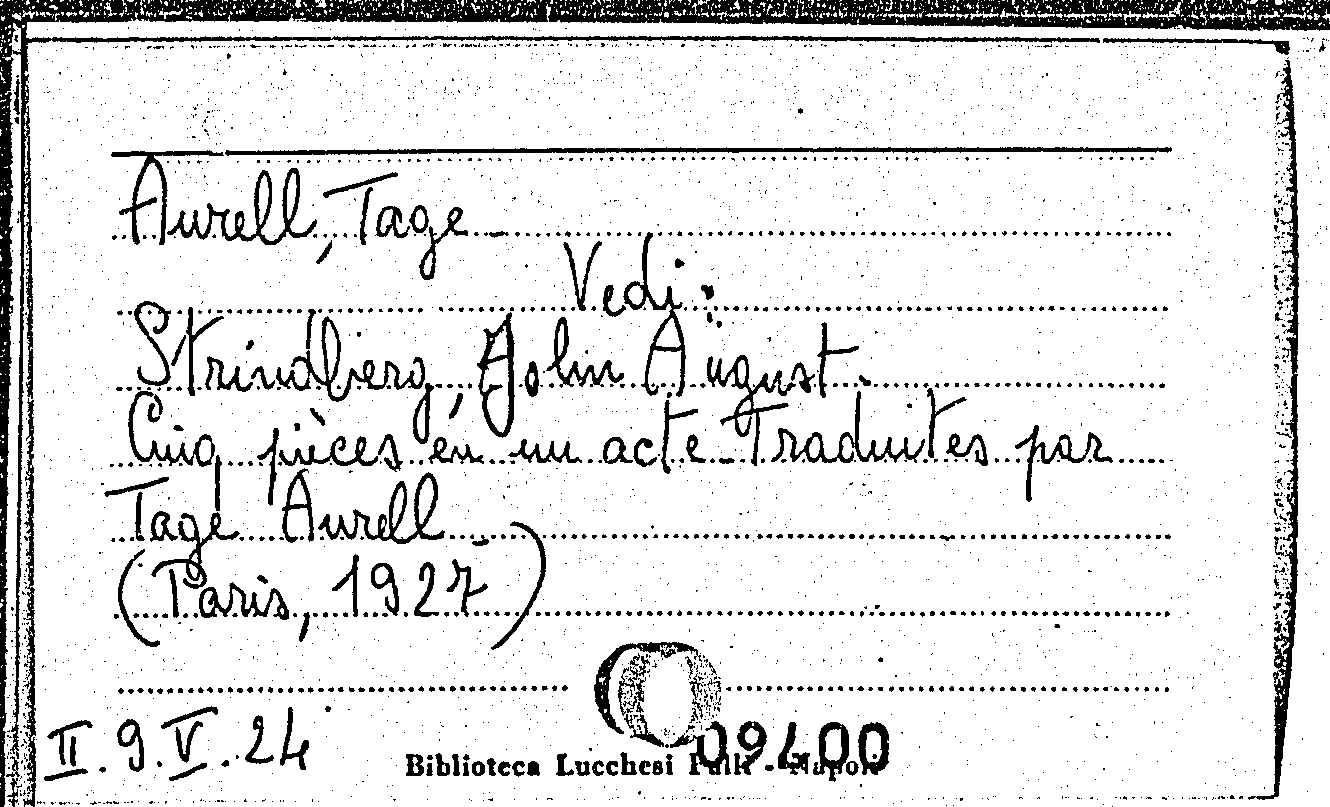 Aurell, Tage
Vedi:
Strindberg, John August.
Cinq pièces en un acte_Traduites par
Tage Aurell_
(Paris, 1927)
II.9.V.24
09400
Biblioteca Lucchesi Palli - Napoli